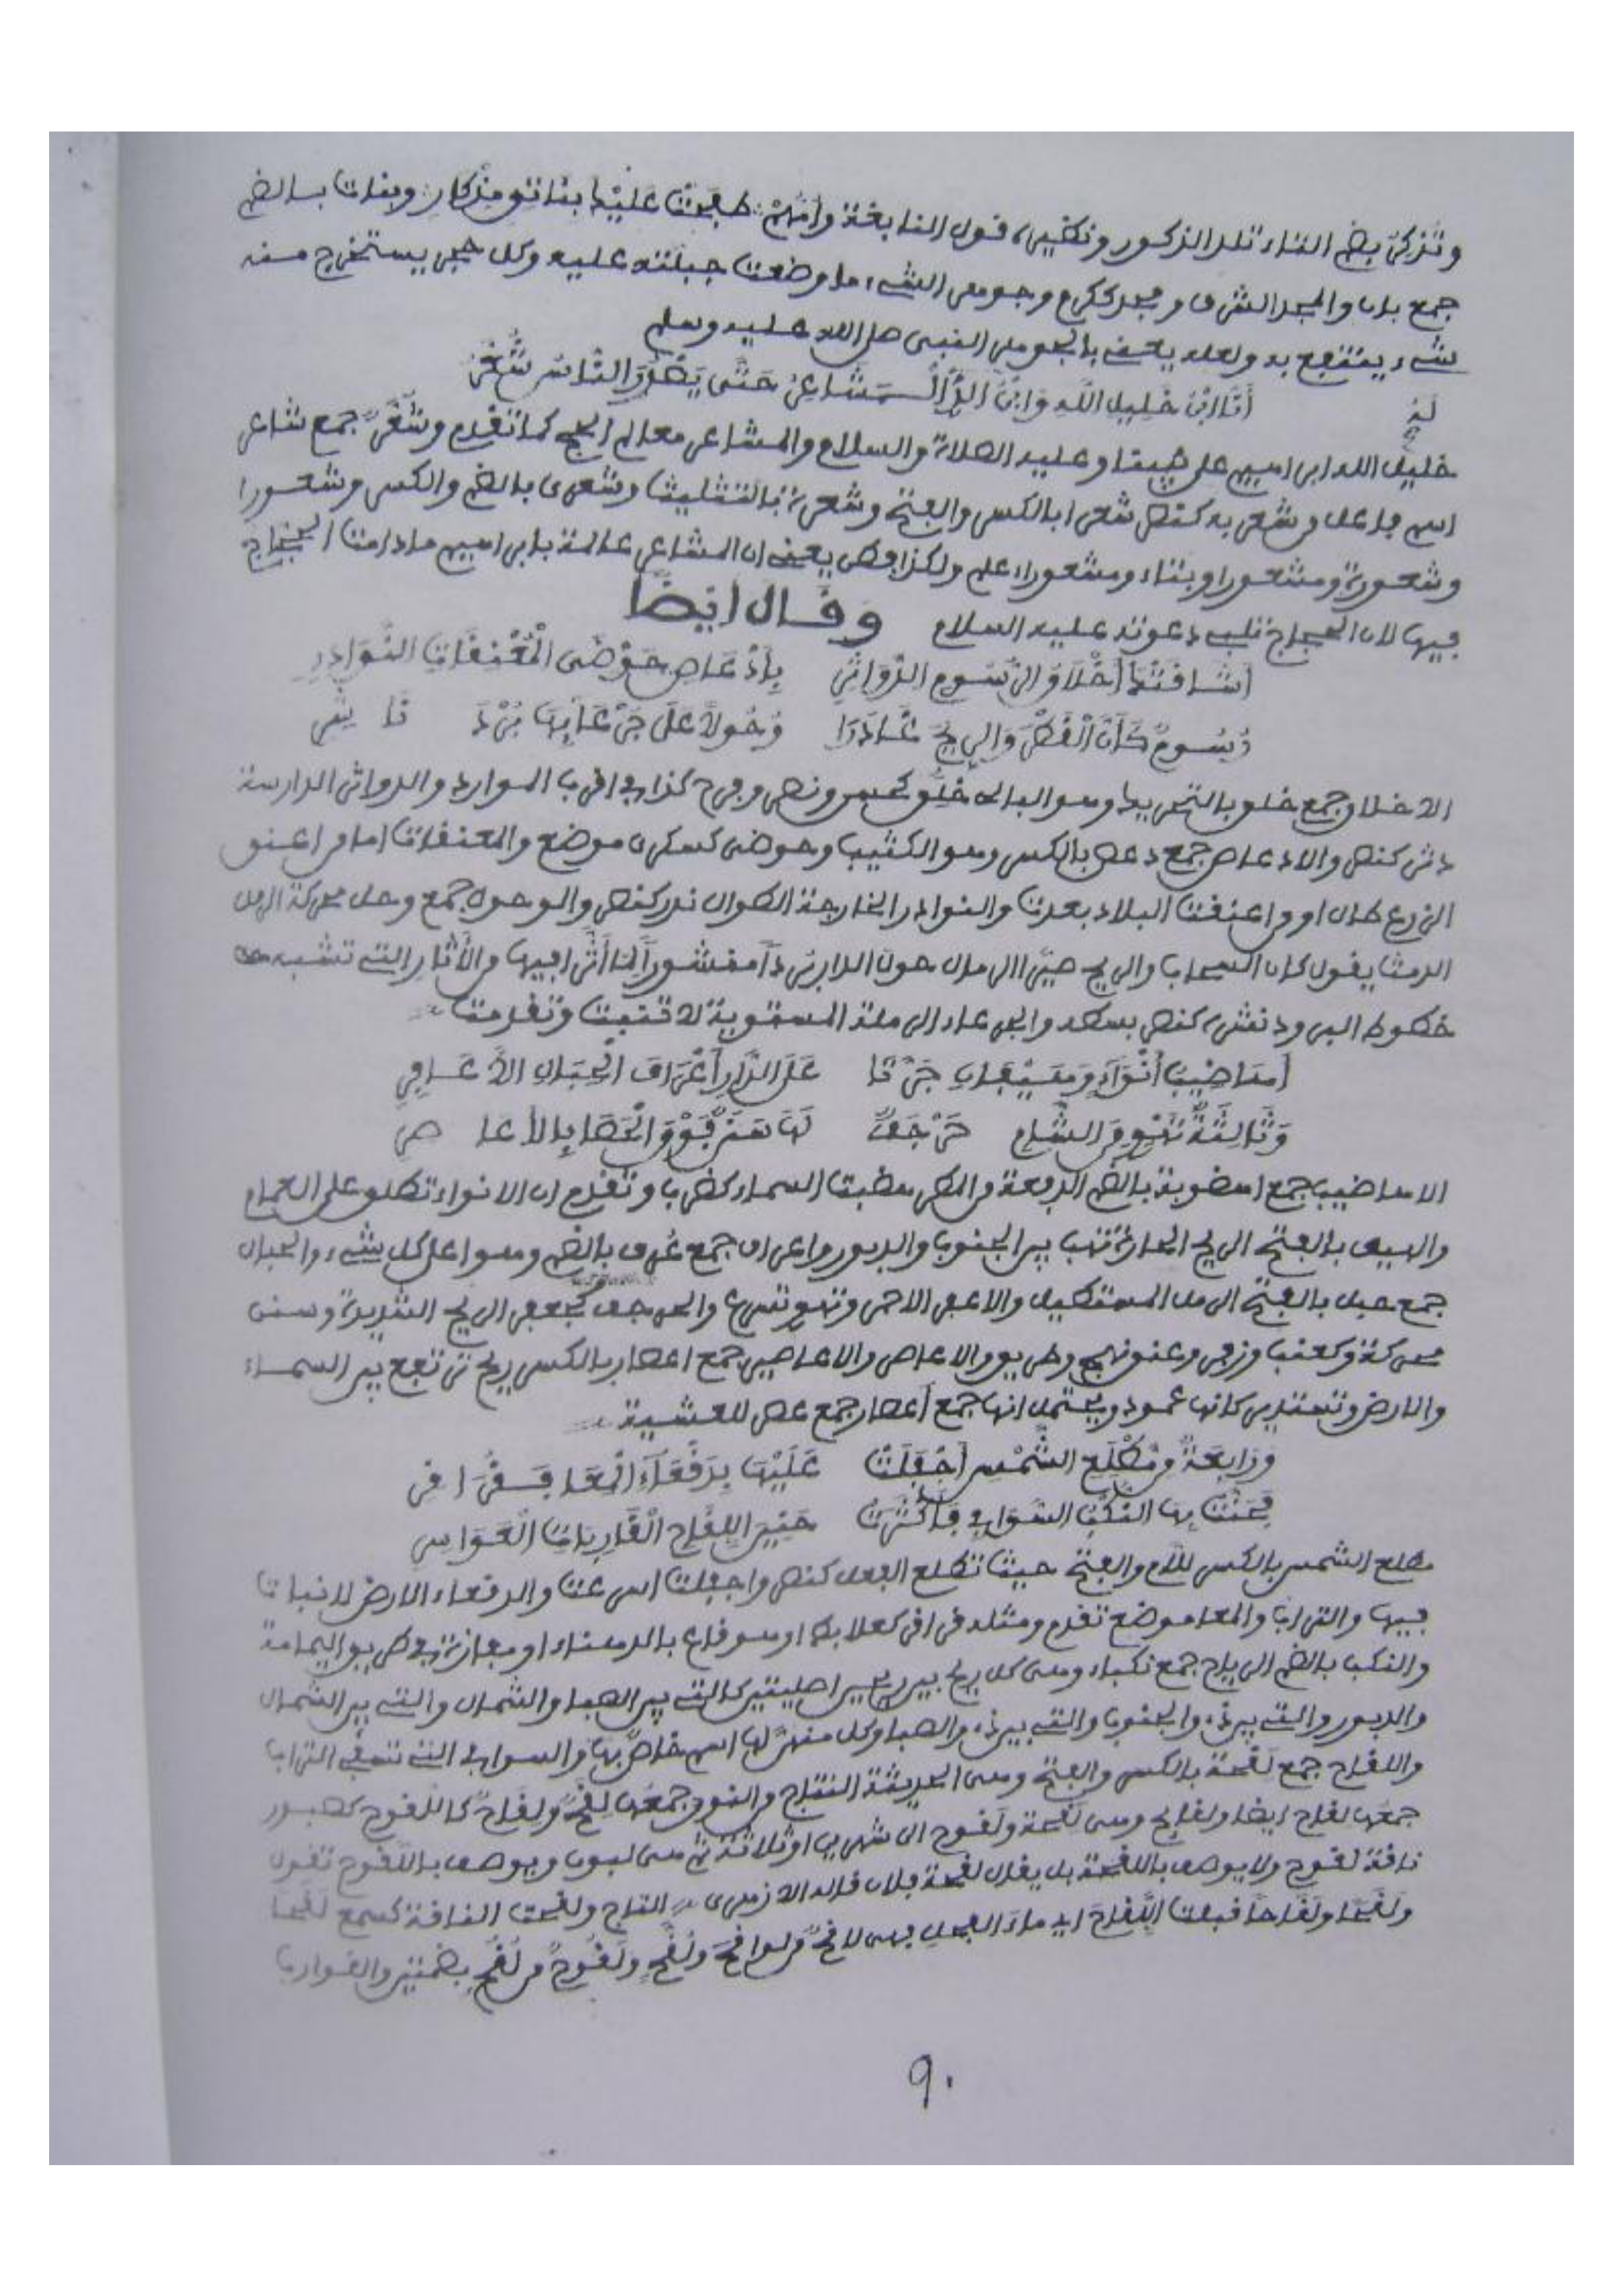 وتذكر بضم التاء تلد الذكور وتكثير، قول النابغة وأمهم: طفحت عليك بناتق مذكار: وبنات بالضم
جمع بان والمجد الشرف ومجد ككرم وجوهر الشيء ما وضعت جبلته عليه وكل حجر يستخرج منه
شيء ينتفع به ولعله يعني بالجوهر النبي صلى الله عليه وسلم
أنا ابن خليل الله وابن المشاعر حتى يصدر الناس شعر
خليل الله ابراهيم على نبينا وعليه الصلاة والسلام والمشاعر معالم الحج كما تقدم وشعر جمع شاعر
اسم فاعل من شعر به كنصر شعرا بالكسر والفتح وشعرة بالتثليث وشعرى بالضم والكسر وشعورا
وشعورة ومشعورا وبتاء ومشعوراء علم ولكذا فطن يعني ان المشاعر عالمة بابراهيم مادامت الحجاج
فيها لان الحجاج تلبي دعوته عليه السلام وقال أيضا
أشاقتك أخلاق الرسوم الدواثر بأدعاص حوضى المعنقات النوادر
رسوم كأن القطر والريح غادرا وحولا على جرعائها برد ناشر
الاخلاق جمع خلق بالتحريك وهو البالي خلق كحسن ونصر وفرح كذا في اقرب الموارد والدواثر الدارسة
دثر كنصر والادعاص جمع دعص بالكسر وهو الكثيب وحوضى كسكرى موضع والمعنقات اما من اعنق
الزرع طال او من اعنقت البلاد بعدت والنوادر الخارجة الطوال ندر كنصر والوحول جمع وحل محركة الرمل
الدمث يقول كان السحاب والريح صيرا الرمال حول الدار برداً منشوراً لما أثرا فيها من الأثار التي تشبه
خطوط البرود نشر كنصر بسط والجرعاء الرملة المستوية لا تنبت وتقدمت
أهاضيب أنواء وهيفان جرتا على الدار أعراف الحبال الأعافر
وثالثة تهوي من الشام حرجف لها سنن فوق الحصا بالأعاصر
الاهاضيب جمع اهضوبة بالضم الدفعة من المطر هضبت السماء كضرب وتقدم ان الانواء تطلق على الغمام
والهيف بالفتح الريح الحارة تهب بين الجنوب والدبور واعراف جمع عرف بالضم وهو اعلى كل شيء والحبال
جمع حبل بالفتح الرمل المستطيل والاعفر الاحمر وتهوي تسرع والحرجف كجعفر الريح الشديدة وسنن
محركة وكعنب وزفر وعنق نهج وطريق والاعاصر والاعاصير جمع اعصار بالكسر ريح ترتفع بين السماء
والارض وتستدير كانها عمود ويحتمل انها جمع أعصار جمع عصر للعشية
ورابعة من مطلع الشمس أجفلت عليها بدقعاء المعا فقراقر
فحنت بها النكب السوافي فأكثرت حنين اللقاح القاربات العواشر
مطلع الشمس بالكسر للام والفتح حيث تطلع الفعل كنصر واجفلت اسرعت والدقعاء الارض لا نبات
فيها والتراب والمعا موضع تقدم ومثله قراقر كعلابط او هو قاع بالدهناء او مفازة في طريق اليمامة
والنكب بالضم الرياح جمع نكباء وهي كل ريح بين ريحين اصليتين كالتي بين الصبا والشمال والتي بين الشمال
والدبور والتي بين ذه والجنوب والتي بين ذه والصبا وكل منهن لها اسم خاص بها والسوافي التي تسفي التراب
واللقاح جمع لقحة بالكسر والفتح وهي الحديثة النتاج والنوق جمعها لقح ولقاح كاللقوح كصبور
جمعها لقاح ايضا ولقايح وهي لقحة ولقوح الى شهرين او ثلاثة ثم هي لبون ويوصف باللقوح تقول
ناقة لقوح ولا يوصف باللقحة بل يقال لقحة فلان قاله الازهري التاج ولقحت الناقة كسمع لقحا
ولقحا ولقاحا قبلت اللقاح اي ماء الفحل فهي لاقح من لواقح ولقح ولقوح من لقح بضمتين والقوارب
٩٠